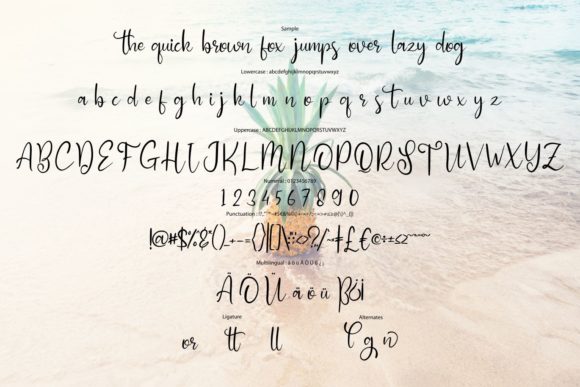 Sample
the quick brown fox jumps over lazy dog
Lowercase : abcdefghijklmnopqrstuvwxyz
a b c d e f g h i j k l m n o p q r s t u v w x y z
Uppercase : ABCDEFGHIJKLMNOPQRSTUVWXYZ
ABCDEFGHIJKLMNOPQRSTUVWXYZ
Nummeral : 0123456789
1 2 3 4 5 6 7 8 9 0
Punctuation :
!@#$%&()_+-={}|[]\:;<>?,/~¤‡£€©÷±Ω
Multilingual : ä ö ü Ä Ö Ü ß ¿ ¡
Ä Ö Ü ä ö ü ß¿¡
Ligature Alternates
or tt ll C g n